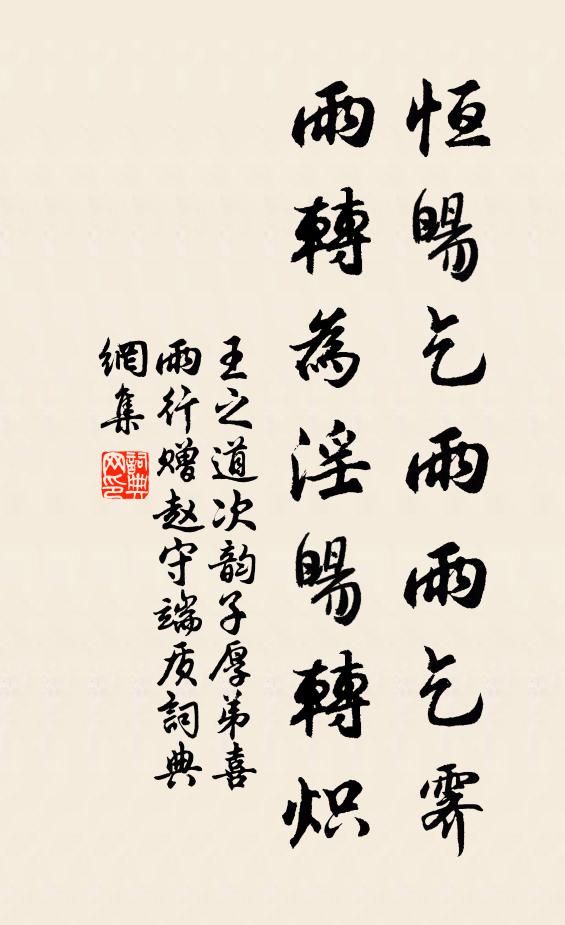 恒暘乞雨雨乞霽
雨轉為淫暘轉炽
王之道次韵子厚弟喜
雨行赠赵守端质詞典
網集
詞典网印